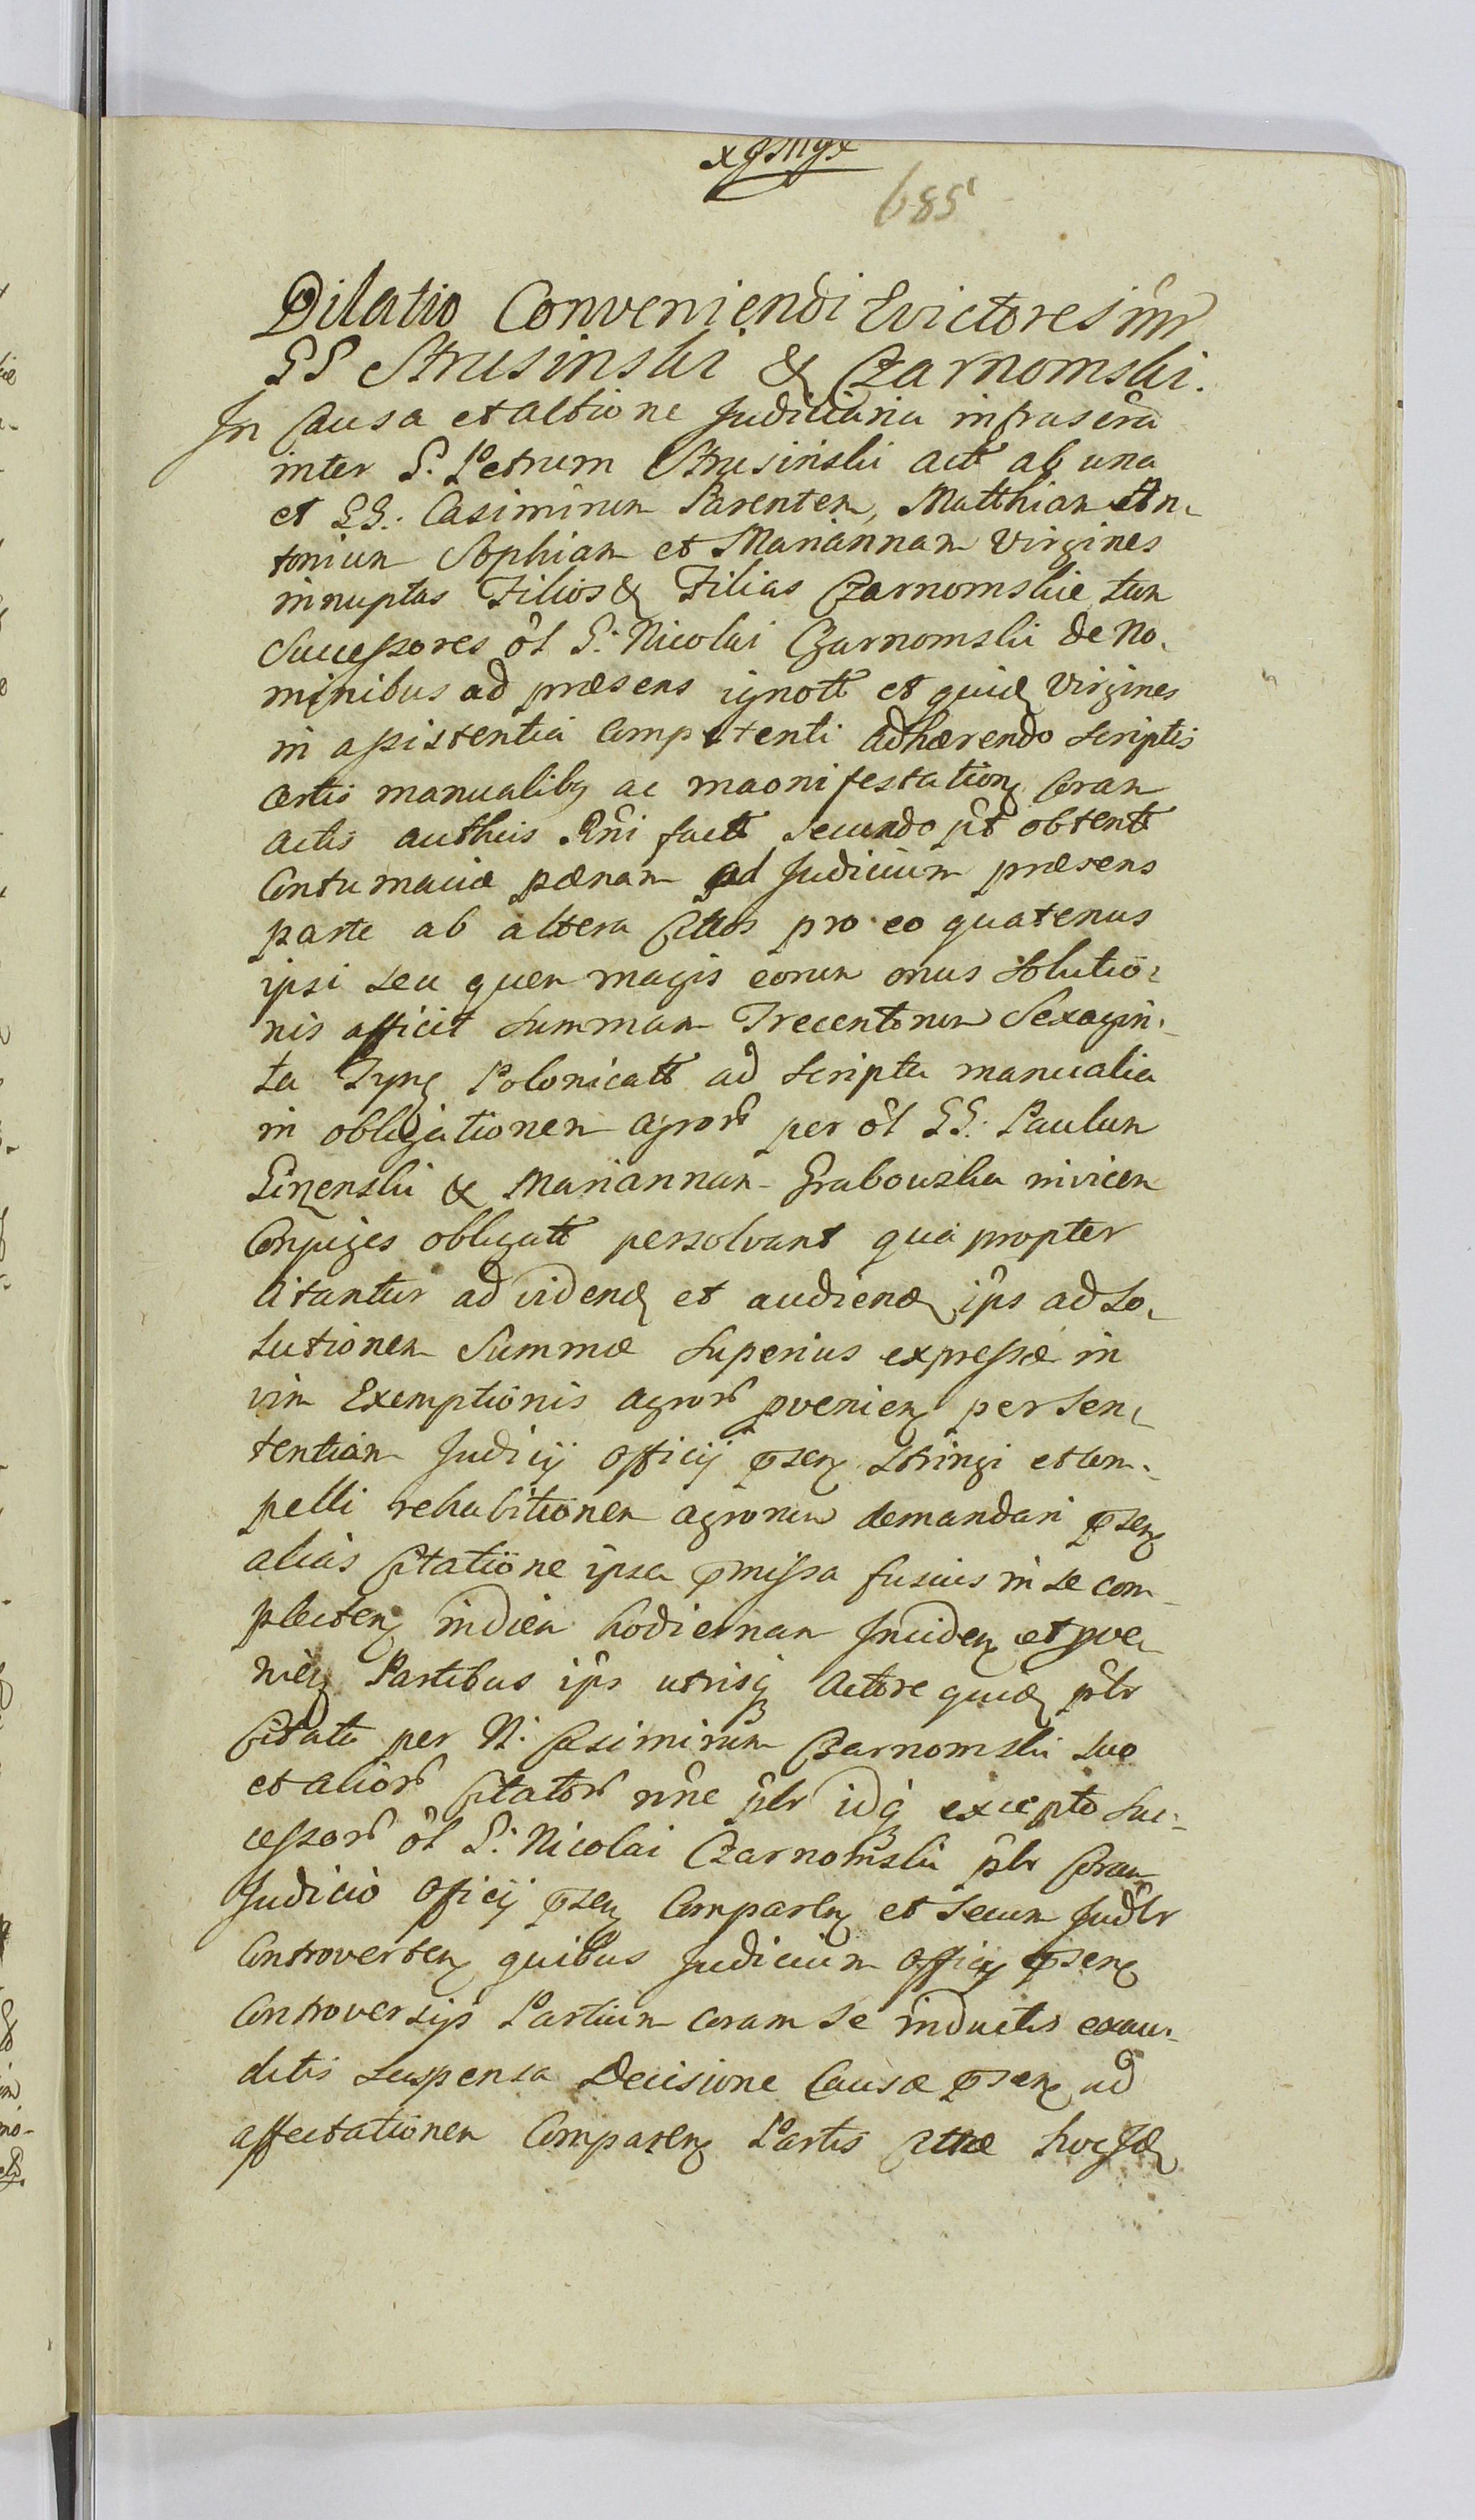 685
Dilatio Conveniendi Evictores inr
GG Strusinski & Czarnomski.
In Causa et actione Judiciaria infrascra
inter G. Petrum Strusinski actt ab una
et GG: Casimirum Parentem, Matthiam An-
tonium Sophiam et Mariannam Virgines
innuptas Filios & Filias Czarnomskie tum
Successores ol G: Nicolai Czarnomski de No-
minibus ad præsens ignott et quidē Virgines
in assistentia competenti adhærendo scriptis
certis manualibq ac maonifestationē coram
actis authcis Rni factt secundo pt obtentt
Contumaciæ pænam ad Judicium præsens
parte ab altera Cttos pro eo quatenus
ipsi seu quem magis eorum onus solutio-
nis afficit summam Trecentorum Sexagin-
ta Tynf Polonicatt ad scripta manualia
in obligationem agrorū per ol GG: Paulum
Gizenski & Mariannam Grabowska invicem
Conjuges obligatt persolvant qua propter
Citantur ad videnḍ et audienḍ ips ad so-
lutionem Summæ superius expressæ in
vim Exemptionis agrorū pvenienē per Sen-
tentiam Judicij Officij psenē stringi et com-
pelli rehabitionem agrorum demandari psenē
alias Citatione ipsa pmissa fusius in se com-
plectenē in diem hodiernam Incidenē et pve-
nienē Partibus ips utrisq actore quidē plr
Citata per N. Casimirum Czarnomski suo
et aliorū Citatorū nne plr idq excepto Suc-
cessorū ol G: Nicolai Czarnomski plr Coram
Judicio Oficij psenē Comparenē et secum Judlr
Controvertenē quibus Judicium Officij psenē
Controversijs Partium coram se inductis exau-
ditis suspensa Decisione Causæ psenē ad
affectationem Comparenē Partis Cttæ